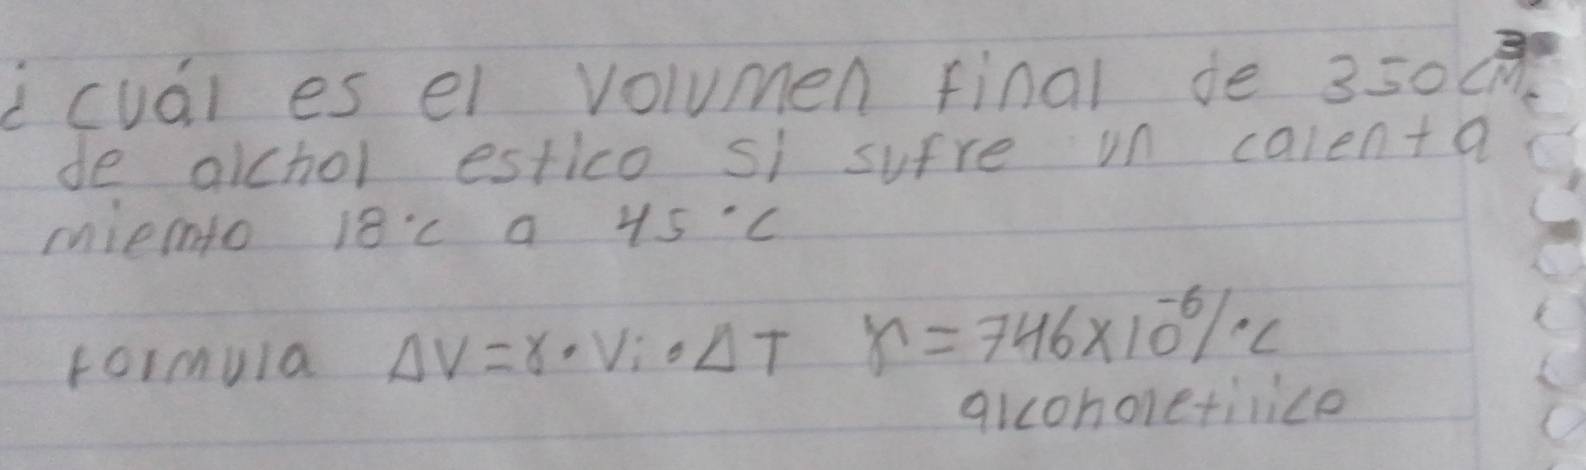 ¿cuál es el volumen final de 350cm³
de alchol estico si sufre un calenta
miemto 18°c a 45°c
formula ΔV=γ•Vi•ΔT γ=746x10⁻⁶/°c
alcoholetilico